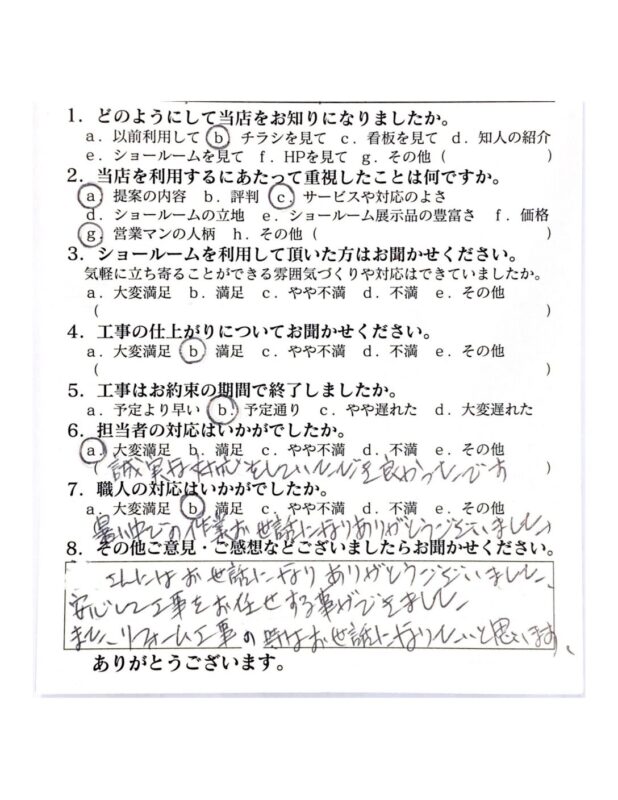 1. どのようにして当店をお知りになりましたか。
a. 以前利用して b. チラシを見て c. 看板を見て d. 知人の紹介
e. ショールームを見て f. HPを見て g. その他 ( )
2. 当店を利用するにあたって重視したことは何ですか。
a. 提案の内容 b. 評判 c. サービスや対応のよさ
d. ショールームの立地 e. ショールーム展示品の豊富さ f. 価格
g. 営業マンの人柄 h. その他 ( )
3. ショールームを利用して頂いた方はお聞かせください。
気軽に立ち寄ることができる雰囲気づくりや対応はできていましたか。
a. 大変満足 b. 満足 c. やや不満 d. 不満 e. その他
( )
4. 工事の仕上がりについてお聞かせください。
a. 大変満足 b. 満足 c. やや不満 d. 不満 e. その他
( )
5. 工事はお約束の期間で終了しましたか。
a. 予定より早い b. 予定通り c. やや遅れた d. 大変遅れた
6. 担当者の対応はいかがでしたか。
a. 大変満足 b. 満足 c. やや不満 d. 不満 e. その他
(誠実な対応をしていただき良かったです )
7. 職人の対応はいかがでしたか。
a. 大変満足 b. 満足 c. やや不満 d. 不満 e. その他
暑い中での作業お世話になりありがとうございました)
8. その他ご意見・ご感想などございましたらお聞かせください。
お世話になりありがとうございました、
安心して工事をお任せする事ができました
また、リフォーム工事の時はお世話になりたいと思います、
ありがとうございます。